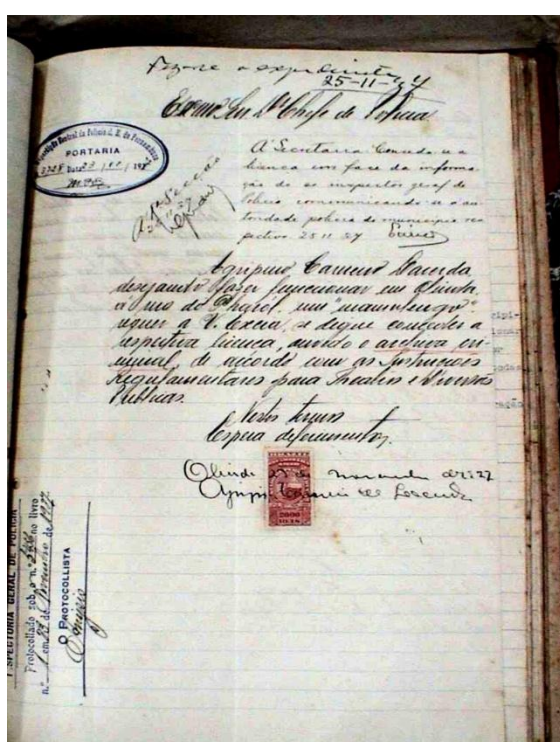 Faça-se o expediente
25-11-27
Exmo Snr Dr Chefe de Policia
Repartição Central da Policia d. E. de Pernambuco
PORTARIA
3728 Data 23 / 11 / 192
A Secretaria. Conceda-se a
licença em face da informa-
ção do sr inspector geral de
Policia communicando-se á au-
toridade policial do municipio res-
pectivo. 25.11.27
A 1ª Secção
Agripino Carneiro Lacerda
desejando fazer funccionar em Olinda
á rua do Pharól, um "mamulengo"
requer a V. Excia, se digne conceder a
respectiva licença, ouvido o archivo cri-
minal, de acôrdo com as Instrucções
Regulamentares para Theatros e Diversões
Publicas.
Nestes termos
Espera deferimento.
Olinda 23 de novembro de 1927
Agripino Carneiro de Lacerda
BRASIL
2000
REIS
INSPECTORIA GERAL DE POLICIA
Protocollado sob o n.º no livro
n.º 1 em 23 de Novembro de 1927
O PROTOCOLLISTA